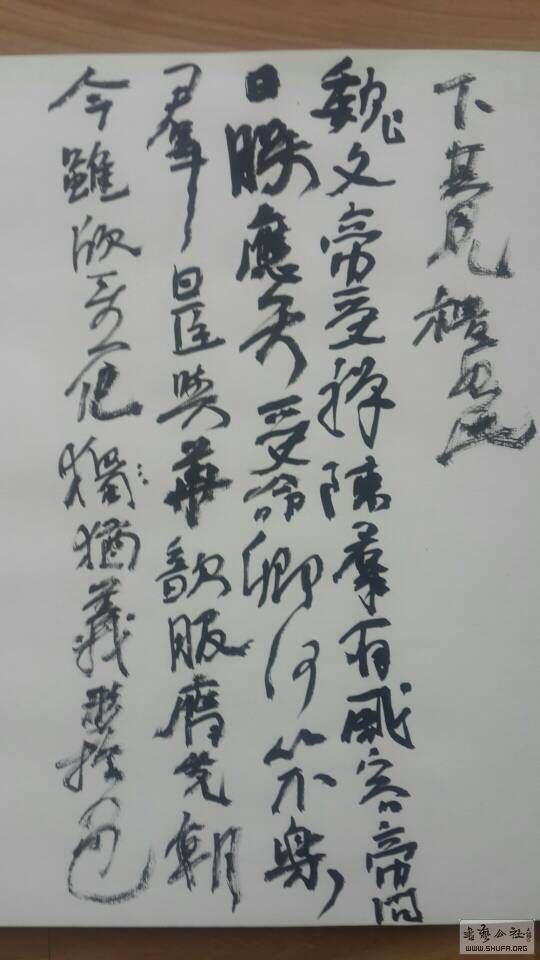 下其見禮如此
魏文帝受禪陳羣有慼容帝問
曰朕應天受命卿何以不樂
羣曰臣與華歆服膺先朝
今雖欣聖化獨猶義形於色
WWW.SHUFA.ORG